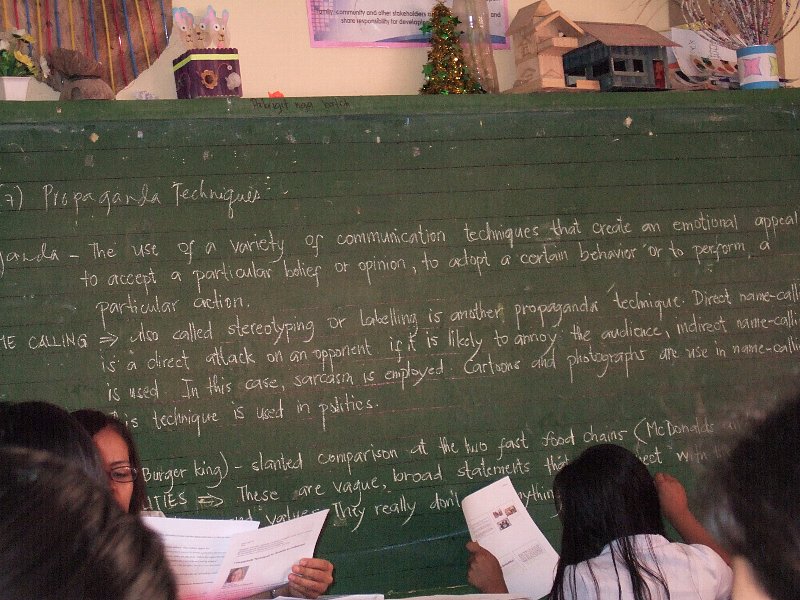 family, community and other stakeholders
and share responsibility for
Pabugit nga
(7) Propaganda Techniques
ganda - The use of a variety of communication techniques that create an emotional appeal
to accept a particular belief or opinion, to adopt a certain behavior or to perform a
particular action.
ME CALLING ⇒ also called stereotyping or labelling is another propaganda technique. Direct name-call
is a direct attack on an opponent if it is likely to annoy the audience, indirect name-calli
is used. In this case, sarcasm is employed. Cartoons and photographs are use in name-calli
is technique is used in politics.
Burger king) - slanted comparison at the two fast food chains (McDonalds
TIES ⇒ These are vague, broad statements that with
values. They really don't anything